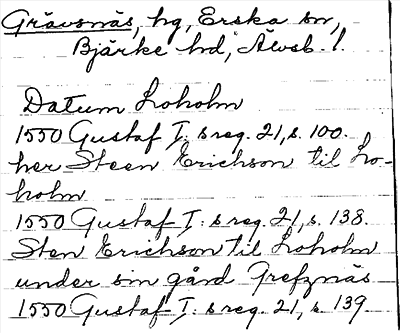 Grävsnäs, hg, Erska sn,
Bjärke hd, Älvsb. l.
Datum Loholm
1550 Gustaf I: s reg. 21, s. 100.
her Steen Erichson til Lo-
holm
1550 Gustaf I: s reg. 21, s. 138.
Sten Erichson til Loholm
under sin gård Grefznäs
1550 Gustaf I: s reg. 21, s. 139.